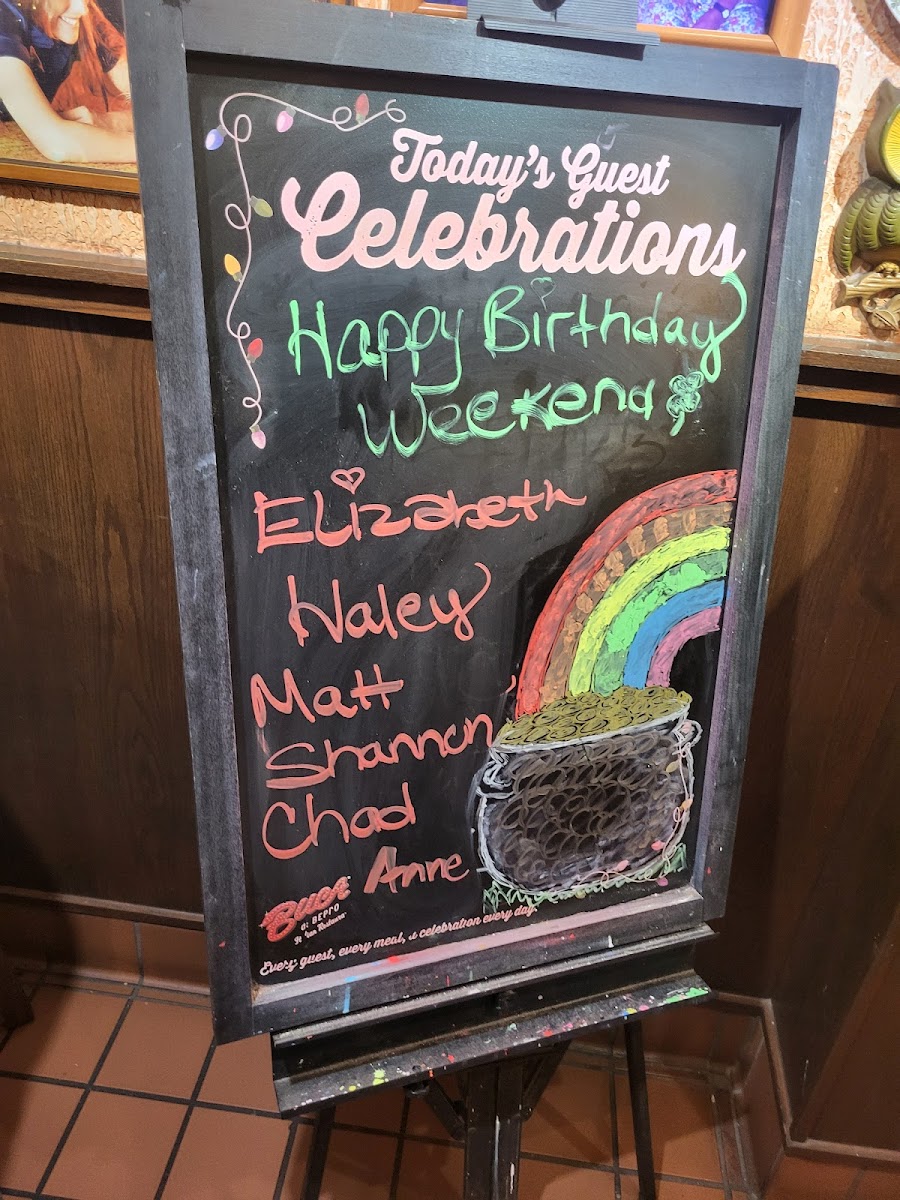 Today's Guest
Celebrations
Happy Birthday
Weekend
Elizabeth
Haley
Matt
Shannon
Chad
Anne
BUCA
di BEPPO
Italian Restaurant
Every guest, every meal, a celebration every day.